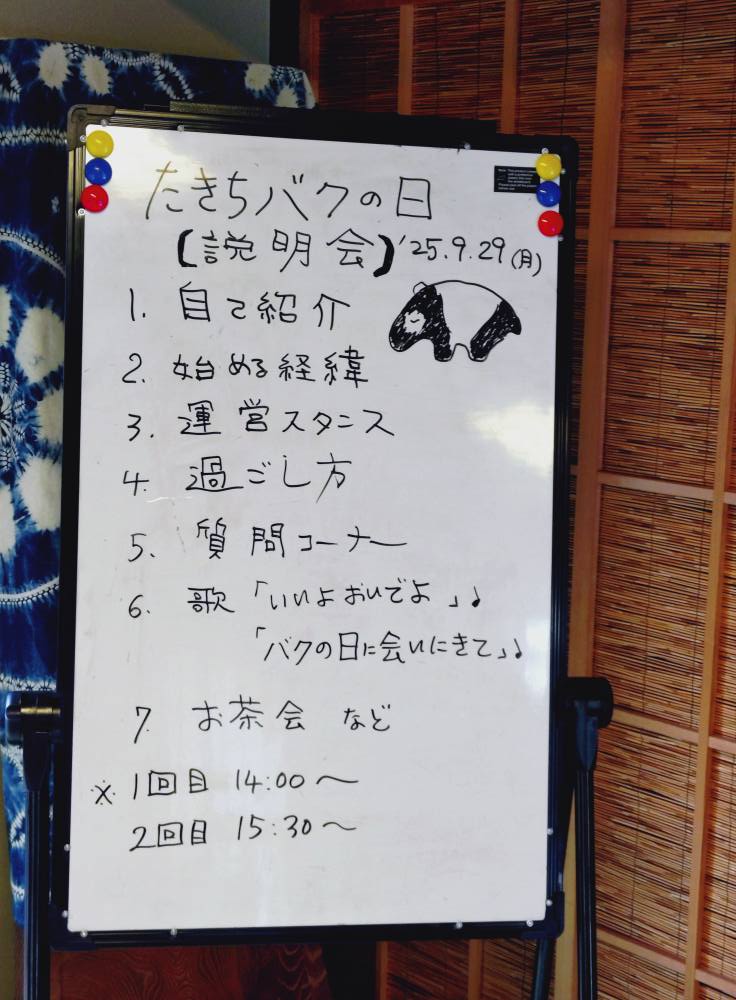 たきちバクの日
【説明会】'25.9.29(月)
1. 自己紹介
2. 始める経緯
3. 運営スタンス
4. 過ごし方
5. 質問コーナー
6. 歌「いいよおいでよ」♪
「バクの日に会いにきて」♪
7. お茶会 など
※1回目 14:00〜
2回目 15:30〜